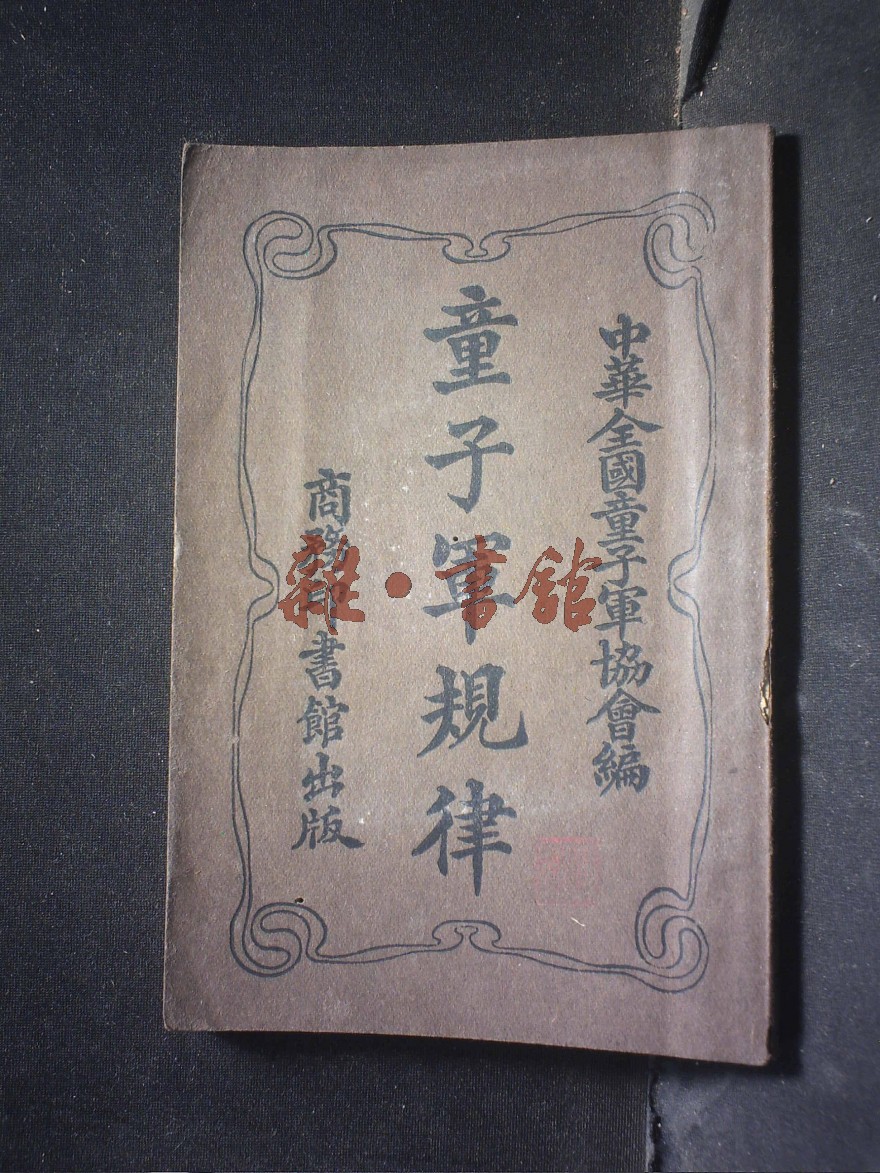 中華全國童子軍協會編
童子軍規律
商務印書館出版
雜·書館